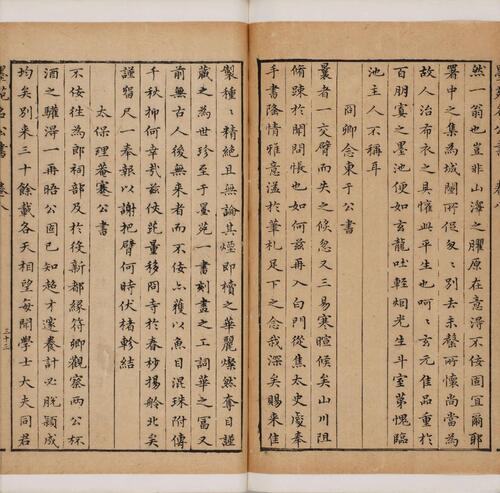 然一翁也豈非山海之膠原在意得不佞固宜爾耶
署中之集為城闉所促匆匆別去未罄所懷尚當為
故人治布衣之具慛此平生也呵呵玄元佳品重於
百朋寘之墨池便如玄龍吐輕烟光生斗室第愧臨
池主人不稱耳
冏卿念東于公書
曩者一交臂而失之候忽又三易寒暄候矣山川阻
脩踈於聞問悵也如何茲再入白門從焦太史處奉
手書隆情雅意溢於華札足下之念我深矣賜來佳
製種種精絕且無論其煙即櫝之華麗燦然奪目謹
藏之為世珍至于墨苑一書刻畫之工詞華之富又
前無古人後無來者而不佞亦獲以魚目混珠附傳
千秋抑何幸哉茲量移冏寺於春杪揚舲北矣
謹留尺一奉報以謝把臂何時伏楮軫結
太保理菴蹇公書
不佞往為郎祠部及於役新都緣符卿觀察兩公杯
酒之驩得一再晤公固已知超才邃養計必脫穎成
均矣別來三十餘載各天相望每聞學士大夫同君
墨苑名公書 卷八
三十三